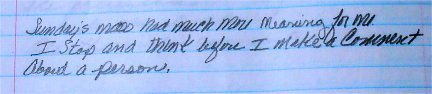 Sunday's mass had much more meaning for me
I stop and think before I make a comment
about a person.